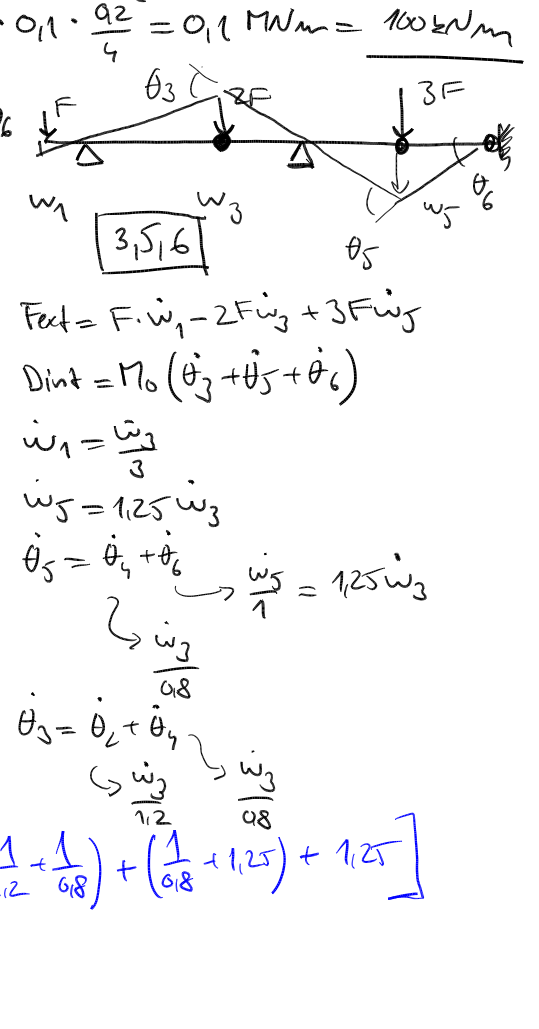 · 0,1 · 0,2/4 = 0,1 MNm = 100 kNm
θ3 2F 3F
6 F
w1 w3 w5 θ6
3,5,6 θ5
Fext = F·ẇ1 − 2Fẇ3 + 3Fẇ5
Dint = M0 (θ̇3 + θ̇5 + θ̇6)
ẇ1 = ẇ3/3
ẇ5 = 1,25 ẇ3
θ̇5 = θ̇4 + θ̇6 → ẇ5/1 = 1,25 ẇ3
→ ẇ3/0,8
θ̇3 = θ̇2 + θ̇4
→ ẇ3/1,2 → ẇ3/0,8
1/1,2 + 1/0,8) + (1/0,8 + 1,25) + 1,25]